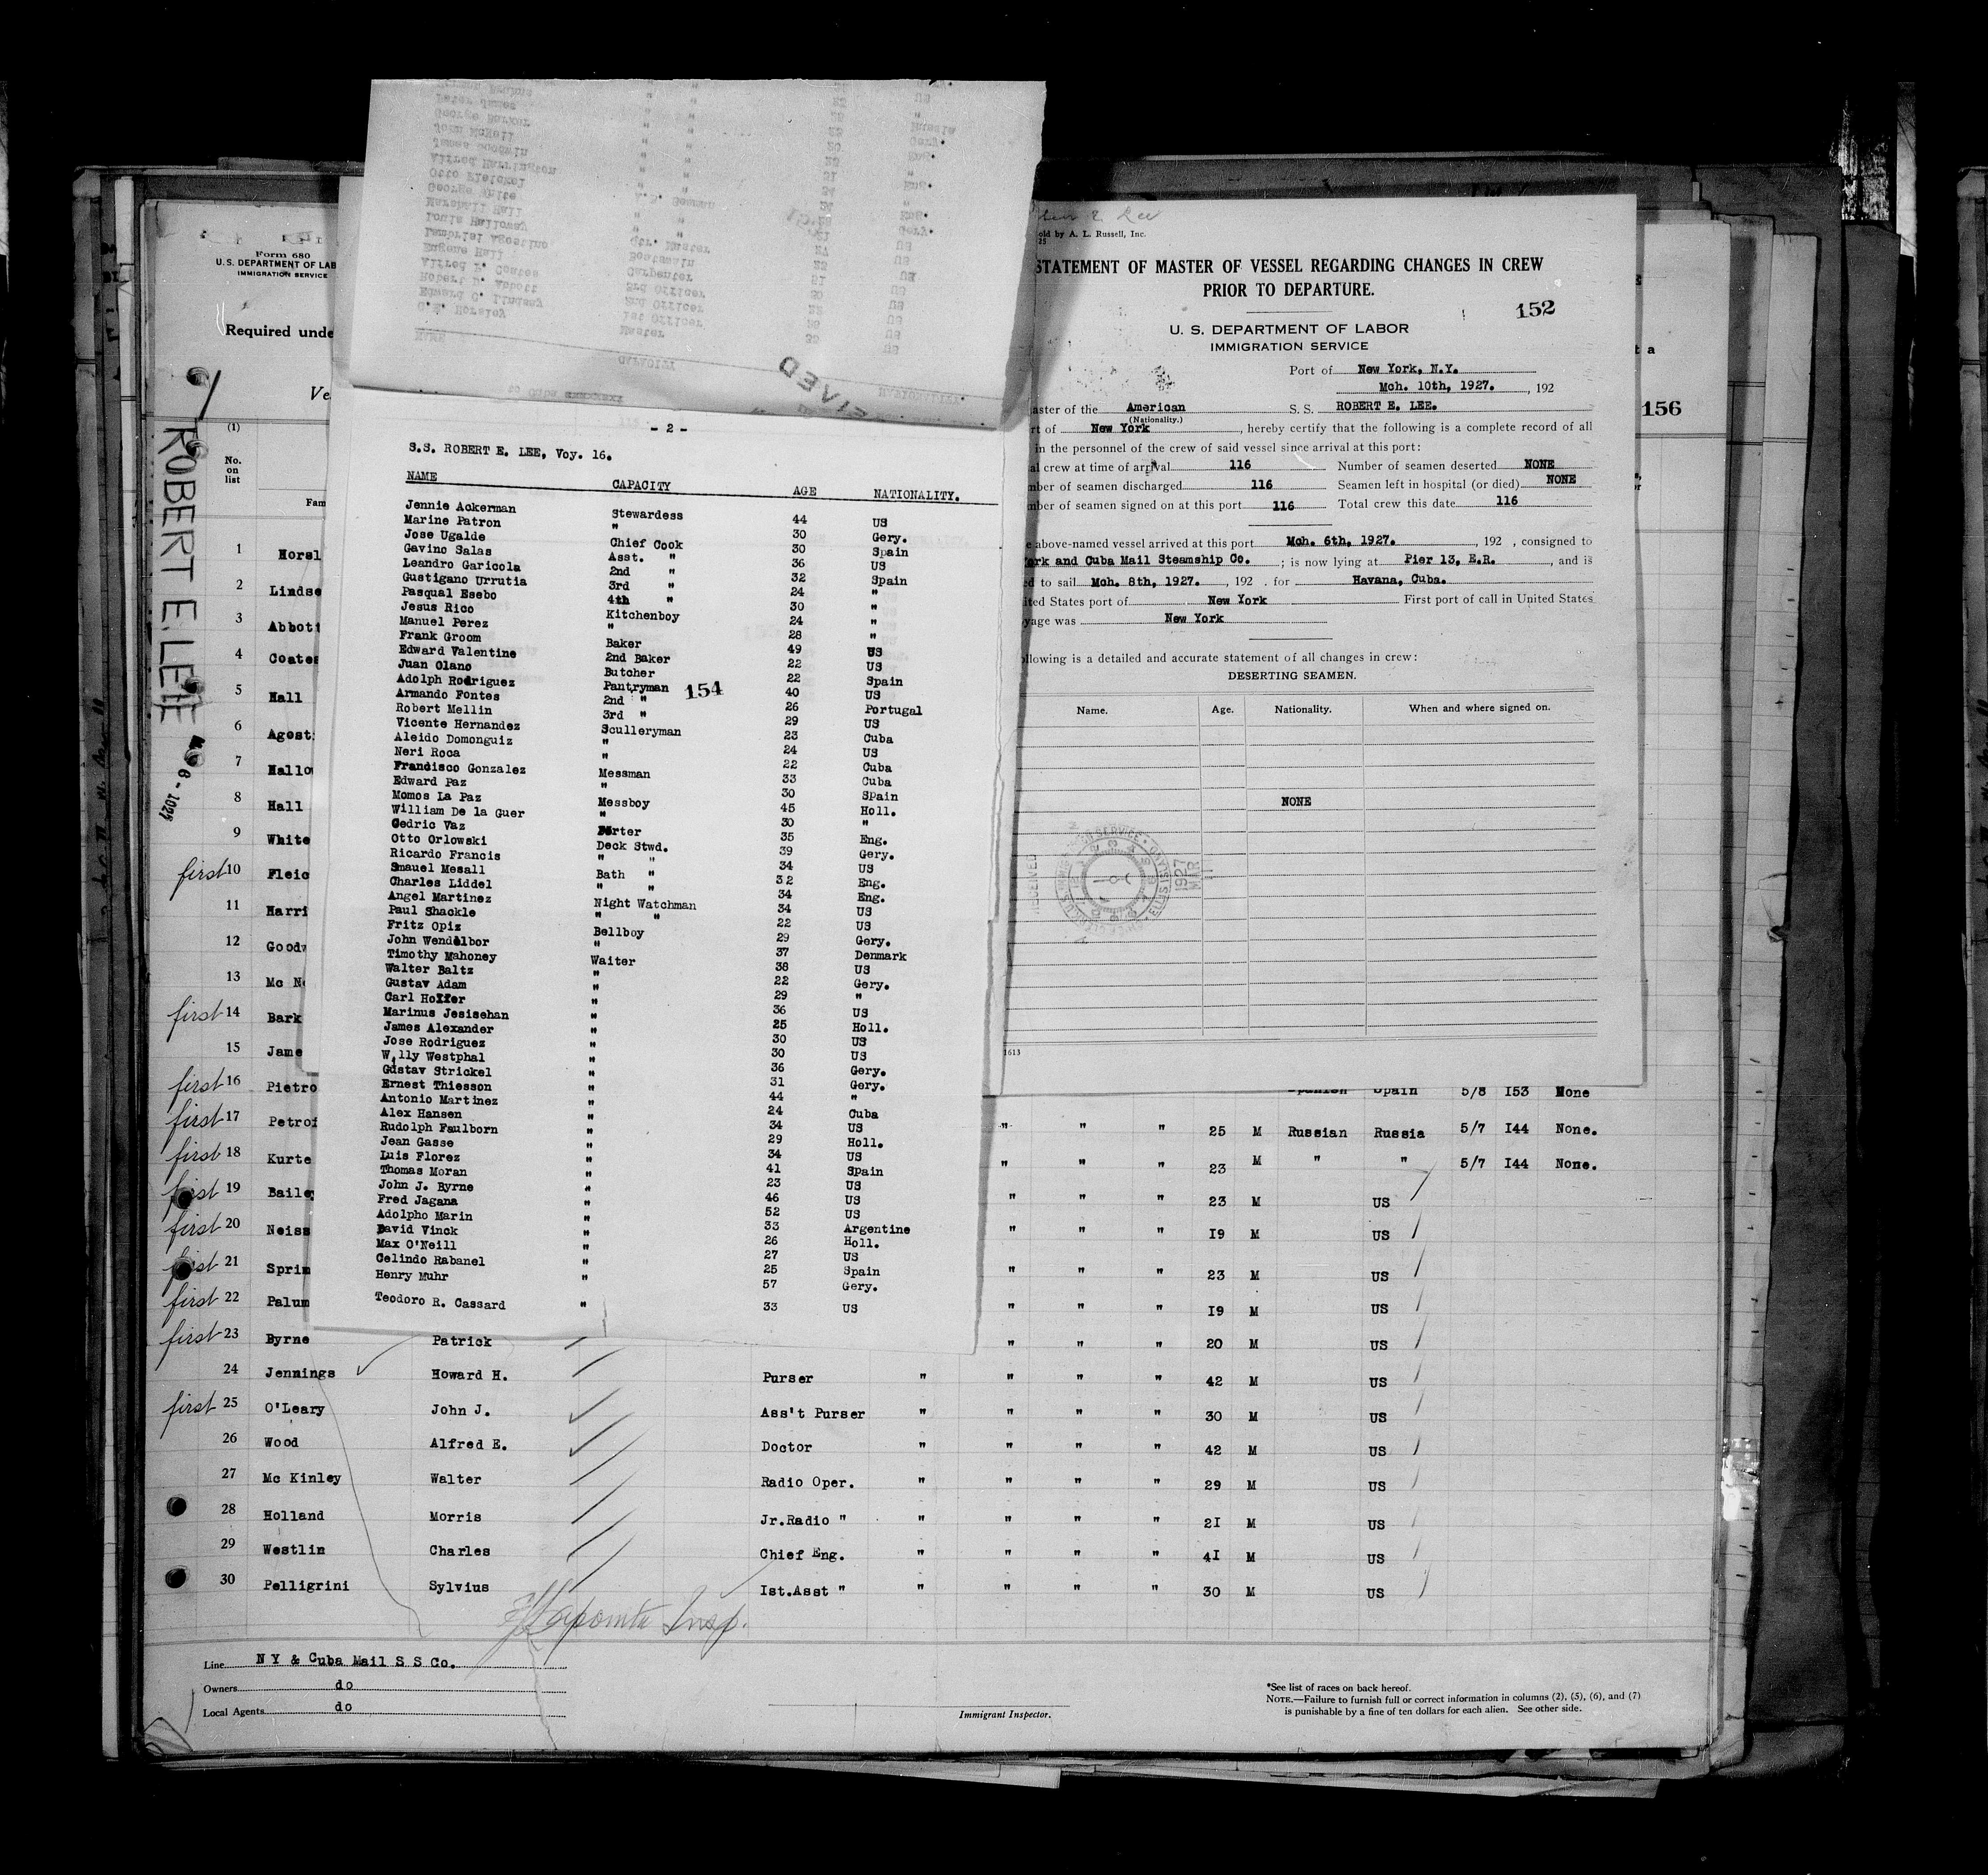 Form 680
U. S. DEPARTMENT OF LAB
IMMIGRATION SERVICE
Required unde
Ve
ROBERT E. LEE
(1)
No.
on
list
Fam
- 2 -
S.S. ROBERT E. LEE, Voy. 16.
NAME CAPACITY AGE NATIONALITY.
Jennie Ackerman Stewardess 44 US
Marine Patron " 30 Gery.
Jose Ugalde Chief Cook 30 Spain
Gavino Salas Asst. " 36 US
Leandro Garicola 2nd " 32 Spain
Gustigano Urrutia 3rd " 24 "
Pasqual Esebo 4th " 30 "
Jesus Rico Kitchenboy 24 "
Manuel Perez " 28 "
Frank Groom Baker 49 US
Edward Valentine 2nd Baker 22 US
Juan Olano Butcher 22 Spain
Adolph Rodriguez Pantryman 40 US
154
Armando Fontes 2nd " 26 Portugal
Robert Mellin 3rd " 29 US
Vicente Hernandez Sculleryman 23 Cuba
Aleido Domonguiz " 24 US
Neri Roca " 22 Cuba
Frandisco Gonzalez Messman 33 Cuba
Edward Paz " 30 Spain
Momos La Paz Messboy 45 Holl.
William De la Guer " 30 "
Cedric Vaz Porter 35 Eng.
Otto Orlowski Deck Stwd. 39 Gery.
Ricardo Francis " " 34 US
Smauel Mesall Bath " 32 Eng.
Charles Liddel " " 34 Eng.
Angel Martinez Night Watchman 34 US
Paul Shackle " " 22 US
Fritz Opiz Bellboy 29 Gery.
John Wendelbor " 37 Denmark
Timothy Mahoney Waiter 38 US
Walter Baltz " 22 Gery.
Gustav Adam " 29 "
Carl Hoffer " 36 US
Marinus Jesisehan " 25 Holl.
James Alexander " 30 US
Jose Rodriguez " 30 US
Willy Westphal " 36 Gery.
Gustav Strickel " 31 Gery.
Ernest Thiesson " 44 "
Antonio Martinez " 24 Cuba
Alex Hansen " 34 US
Rudolph Faulborn " 29 Holl.
Jean Gasse " 34 US
Luis Florez " 41 Spain
Thomas Moran " 23 US
John J. Byrne " 46 US
Fred Jagana " 52 US
Adolpho Marin " 33 Argentine
David Vinck " 26 Holl.
Max O'Neill " 27 US
Celindo Rabanel " 25 Spain
Henry Muhr " 57 Gery.
Teodoro R. Cassard " 33 US
old by A. L. Russell, Inc.
STATEMENT OF MASTER OF VESSEL REGARDING CHANGES IN CREW
PRIOR TO DEPARTURE.
152
U. S. DEPARTMENT OF LABOR
IMMIGRATION SERVICE
Port of New York, N.Y.
Mch. 10th, 1927. , 192
aster of the American S. S. ROBERT E. LEE.
(Nationality.)
rt of New York , hereby certify that the following is a complete record of all
in the personnel of the crew of said vessel since arrival at this port:
al crew at time of arrival 116 Number of seamen deserted NONE
mber of seamen discharged 116 Seamen left in hospital (or died) NONE
mber of seamen signed on at this port 116 Total crew this date 116
e above-named vessel arrived at this port Mch. 6th, 1927. , 192 , consigned to
ork and Cuba Mail Steamship Co. ; is now lying at Pier 13, E.R. , and is
ed to sail Mch. 8th, 1927. , 192 . for Havana, Cuba.
ited States port of New York First port of call in United States
yage was New York
ollowing is a detailed and accurate statement of all changes in crew:
DESERTING SEAMEN.
Name. Age. Nationality. When and where signed on.
NONE
1613
t a
156
1 Horsl
2 Lindse
3 Abbott
4 Coates
5 Hall
6 Agost
7 Hallo
8 Hall
9 White
first 10 Fleic
11 Harri
12 Goodw
13 Mc N
first 14 Bark
15 Jame
first 16 Pietro Spanish Spain 5/8 153 None
first 17 Petrof " " " 25 M Russian Russia 5/7 144 None.
first 18 Kurte " " " 23 M " " 5/7 144 None.
first 19 Baile " " " 23 M US
first 20 Neiss " " " 19 M US
first 21 Sprin " " " 23 M US
first 22 Palum " " " 19 M US
first 23 Byrne Patrick " " " 20 M US
24 Jennings Howard H. Purser " " " " 42 M US
first 25 O'Leary John J. Ass't Purser " " " " 30 M US
26 Wood Alfred E. Doctor " " " " 42 M US
27 Mc Kinley Walter Radio Oper. " " " " 29 M US
28 Holland Morris Jr.Radio " " " " " 21 M US
29 Westlin Charles Chief Eng. " " " " 41 M US
30 Pelligrini Sylvius Ist.Asst " " " " " 30 M US
Line N Y & Cuba Mail S S Co.
Owners do
Local Agents do
Immigrant Inspector.
*See list of races on back hereof.
NOTE.—Failure to furnish full or correct information in columns (2), (5), (6), and (7)
is punishable by a fine of ten dollars for each alien. See other side.